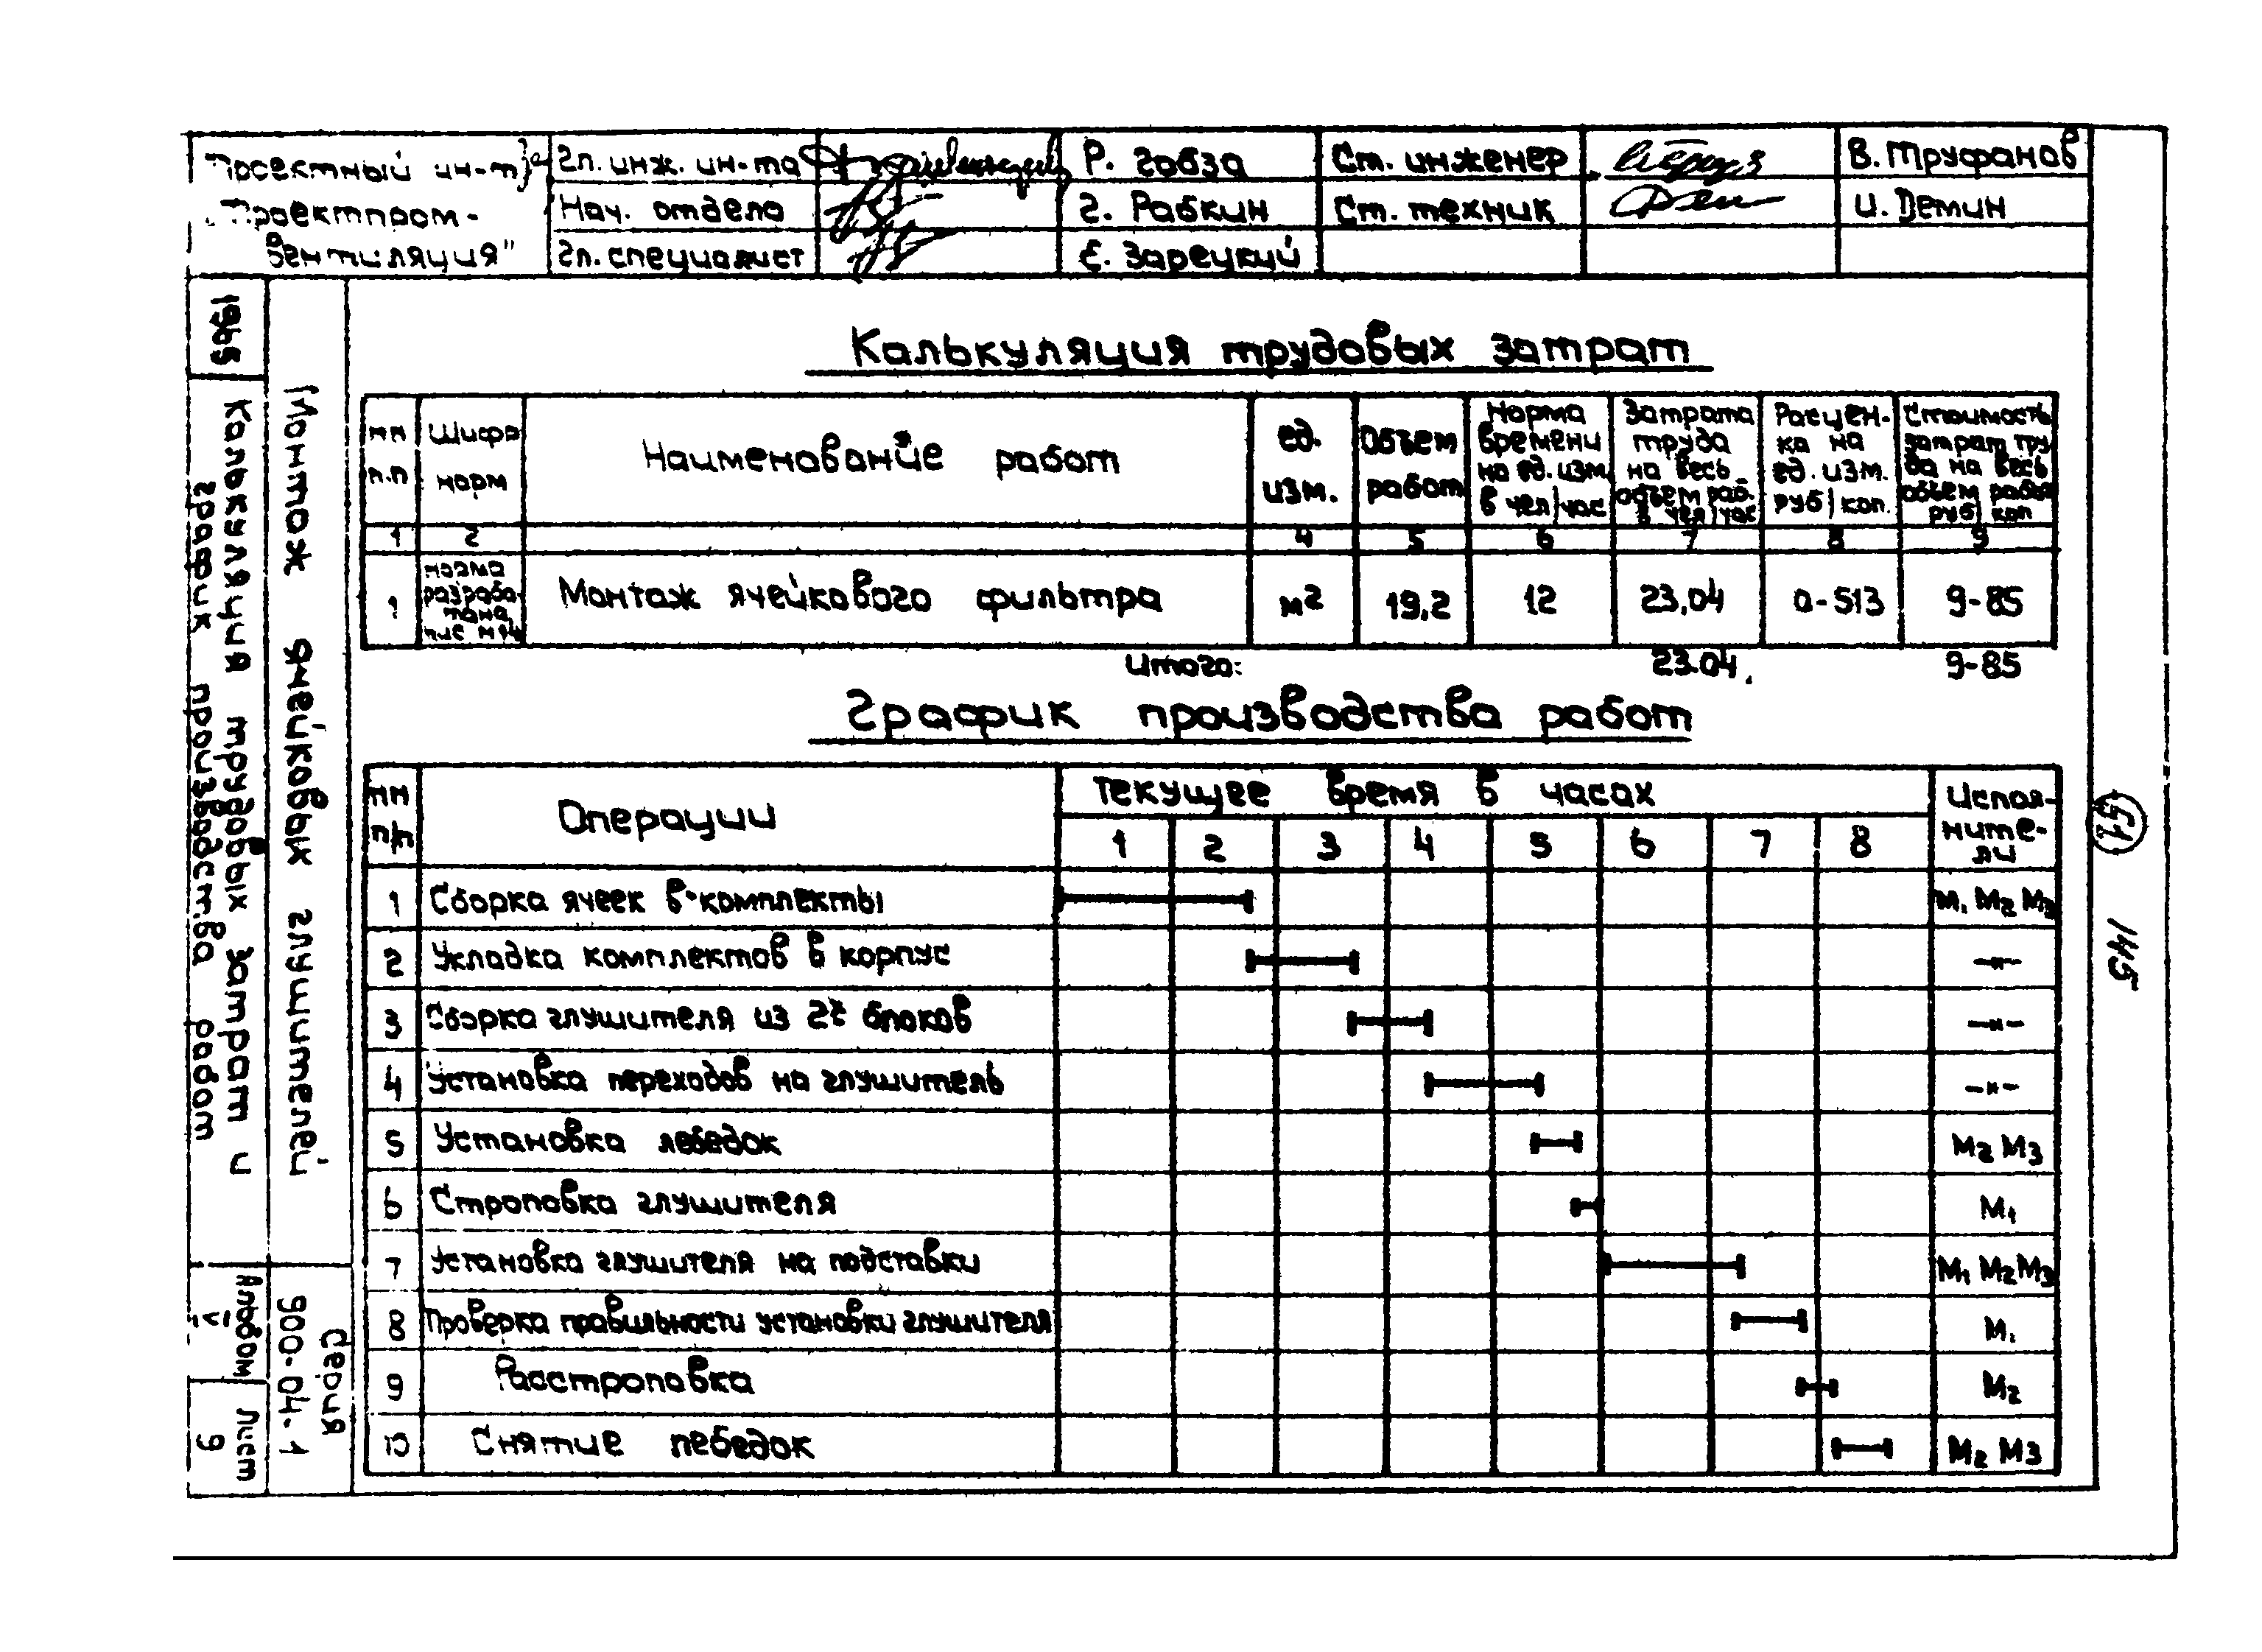 Проектный ин-т
„Проектпром-
вентиляция"
Гл. инж. ин-та
Р. Гобза
Ст. инженер
В. Труфанов
Нач. отдела
Г. Рабкин
Ст. техник
И. Демин
Гл. специалист
Е. Зарецкий
1965
Калькуляция трудовых затрат и
график производства работ
Монтаж ячейковых глушителей
Альбом
V
Лист
9
Серия
900-04-1
Калькуляция трудовых затрат
нн
п.п
Шифр
норм
Наименование работ
ед.
изм.
Объем
работ
Норма
времени
на ед. изм.
в чел/час
Затрата
труда
на весь
объем раб.
в чел/час
Расцен-
ка на
ед. изм.
руб | коп.
Стоимость
затрат тру-
да на весь
объем работ
руб | коп
1 2 4 5 6 7 8 9
1
норма
разрабо-
тана
Монтаж ячейкового фильтра
м2 19,2 12 23,04 0-513 9-85
Итого: 23.04 9-85
График производства работ
нн
п/п
Операции
Текущее время в часах
1 2 3 4 5 6 7 8
Испол-
ните-
ли
1 Сборка ячеек в комплекты М1 М2 М3
2 Укладка комплектов в корпус –"–
3 Сборка глушителя из 2х блоков –"–
4 Установка переходов на глушитель –"–
5 Установка лебедок М2 М3
6 Строповка глушителя М1
7 Установка глушителя на подставки М1 М2 М3
8 Проверка правильности установки глушителя М1
9 Расстроповка М2
10 Снятие лебедок М2 М3
145